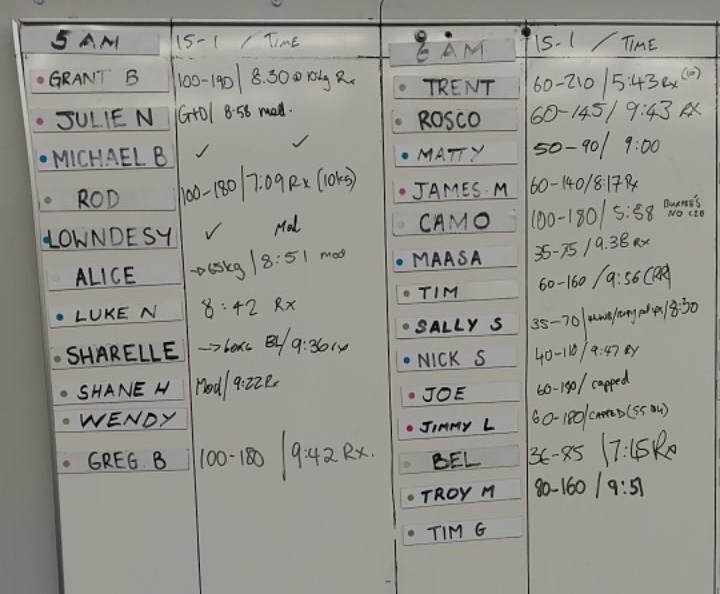 5 AM 15-1 / TIME
GRANT B 100-190 / 8.30 @ 10kg Rx
JULIE N G+O / 8:58 mod.
MICHAEL B ✓ ✓
ROD 100-180 / 7:09 Rx (10kg)
LOWNDESY ✓ Mod
ALICE → 65kg / 8:51 mod
LUKE N 8:42 Rx
SHARELLE → 60KG / 9:36 rx
SHANE H Mod / 9:22 Rx
WENDY
GREG B 100-180 / 9:42 Rx.
6 AM 15-1 / TIME
TRENT 60-210 / 5:43 Rx (10)
ROSCO 60-145 / 9:43 RX
MATTY 50-90 / 9:00
JAMES M 60-140 / 8:17 Rx
CAMO 100-180 / 5:58 NO
MAASA 35-75 / 9.38 Rx
TIM 60-160 / 9:56
SALLY S 35-70 / 8:30
NICK S 40-110 / 9:47
JOE 60-190 / capped
JIMMY L 60-180 / CAPPED
BEL 36-85 / 7:15 Rx
TROY M 80-160 / 9:51
TIM G